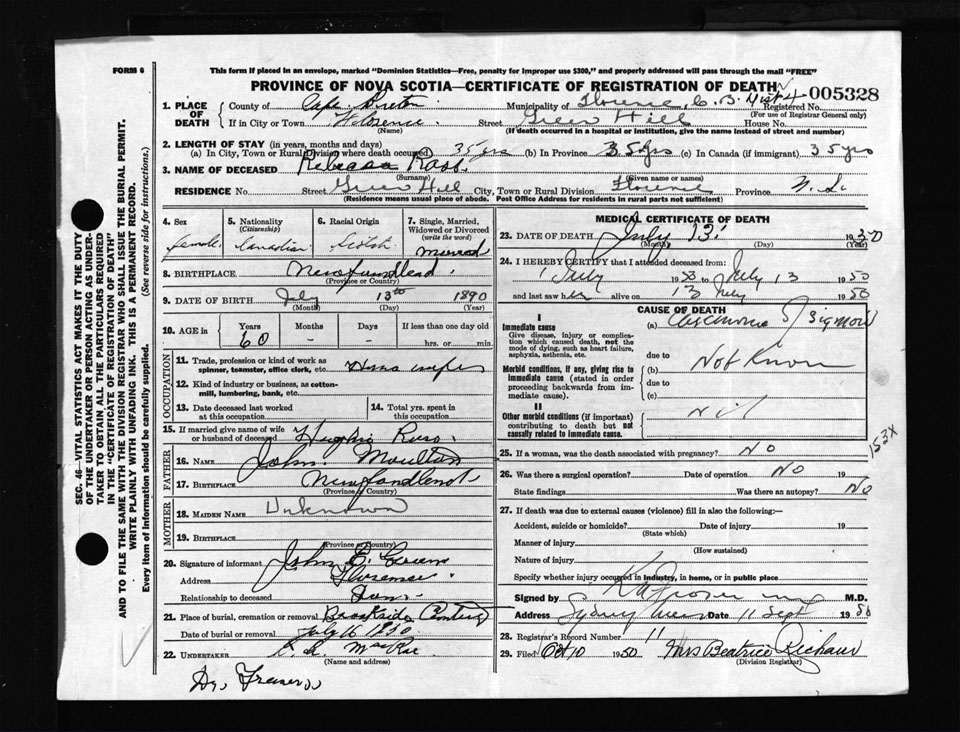 FORM 6
This form if placed in an envelope, marked "Dominion Statistics—Free, penalty for improper use $300," and properly addressed will pass through the mail "FREE"
PROVINCE OF NOVA SCOTIA—CERTIFICATE OF REGISTRATION OF DEATH
005328
1. PLACE OF DEATH
County of Cape Breton Municipality of Florence, C. B. Registered No.
(For use of Registrar General only)
If in City or Town Florence Street Green Hill House No.
(Name) (If death occurred in a hospital or institution, give the name instead of street and number)
2. LENGTH OF STAY (in years, months and days)
(a) In City, Town or Rural Division where death occured 35 yrs (b) In Province 35 yrs (c) In Canada (if immigrant) 35 yrs
3. NAME OF DECEASED Ross
(Surname) (Given name or names)
RESIDENCE No. Street Green Hill City, Town or Rural Division Florence Province N. S.
(Residence means usual place of abode. Post Office Address for residents in rural parts not sufficient)
4. Sex Female
5. Nationality (Citizenship) Canadian
6. Racial Origin Scotch
7. Single, Married, Widowed or Divorced (write the word) Married
8. BIRTHPLACE Newfundland
(Province or Country)
9. DATE OF BIRTH July 13th 1890
(Month) (Day) (Year)
10. AGE in Years Months Days If less than one day old
60 - - hrs. or min.
OCCUPATION
11. Trade, profession or kind of work as spinner, teamster, office clerk, etc.
12. Kind of industry or business, as cotton-mill, lumbering, bank, etc.
13. Date deceased last worked at this occupation
14. Total yrs. spent in this occupation
15. If married give name of wife or husband of deceased Hughie
FATHER
16. NAME John Moulton
17. BIRTHPLACE Newfandlend
(Province or Country)
MOTHER
18. MAIDEN NAME Unknown
19. BIRTHPLACE
(Province or Country)
20. Signature of informant John E.
Address Florence
Relationship to deceased
21. Place of burial, cremation or removal Brookside
Date of burial or removal July 16 1950
22. UNDERTAKER MacRae
(Name and address)
MEDICAL CERTIFICATE OF DEATH
23. DATE OF DEATH July 13 1950
(Month) (Day) (Year)
24. I HEREBY CERTIFY that I attended deceased from:
1 July 1950 to July 13 1950
and last saw her alive on 13 July 1950
CAUSE OF DEATH
I
Immediate cause
Give disease, injury or complication which caused death, not the mode of dying, such as heart failure, asphyxia, asthenia, etc.
(a) Carcinoma of Sigmoid
due to
Morbid conditions, if any, giving rise to immediate cause (stated in order proceeding backwards from immediate cause).
(b) Not Known
due to
(c)
II
Other morbid conditions (if important) contributing to death but not causally related to immediate cause.
Nil
153X
25. If a woman, was the death associated with pregnancy? No
26. Was there a surgical operation? Date of operation No 19
State findings Was there an autopsy? No
27. If death was due to external causes (violence) fill in also the following:—
Accident, suicide or homicide? Date of injury 19
(State which)
Manner of injury
(How sustained)
Nature of injury
Specify whether injury occured in industry, in home, or in public place
Signed by M.D.
Address Sydney Mines Date 11 Sept 1950
28. Registrar's Record Number 11
29. Filed Oct 10 1950 Mrs Beatrice
(Division Registrar)
SEC. 46—VITAL STATISTICS ACT MAKES IT THE DUTY OF THE UNDERTAKER OR PERSON ACTING AS UNDERTAKER TO OBTAIN ALL THE PARTICULARS REQUIRED IN THE "CERTIFICATE OF REGISTRATION OF DEATH" AND TO FILE THE SAME WITH THE DIVISION REGISTRAR WHO SHALL ISSUE THE BURIAL PERMIT.
WRITE PLAINLY WITH UNFADING INK. THIS IS A PERMANENT RECORD.
Every item of information should be carefully supplied. (See reverse side for instructions.)